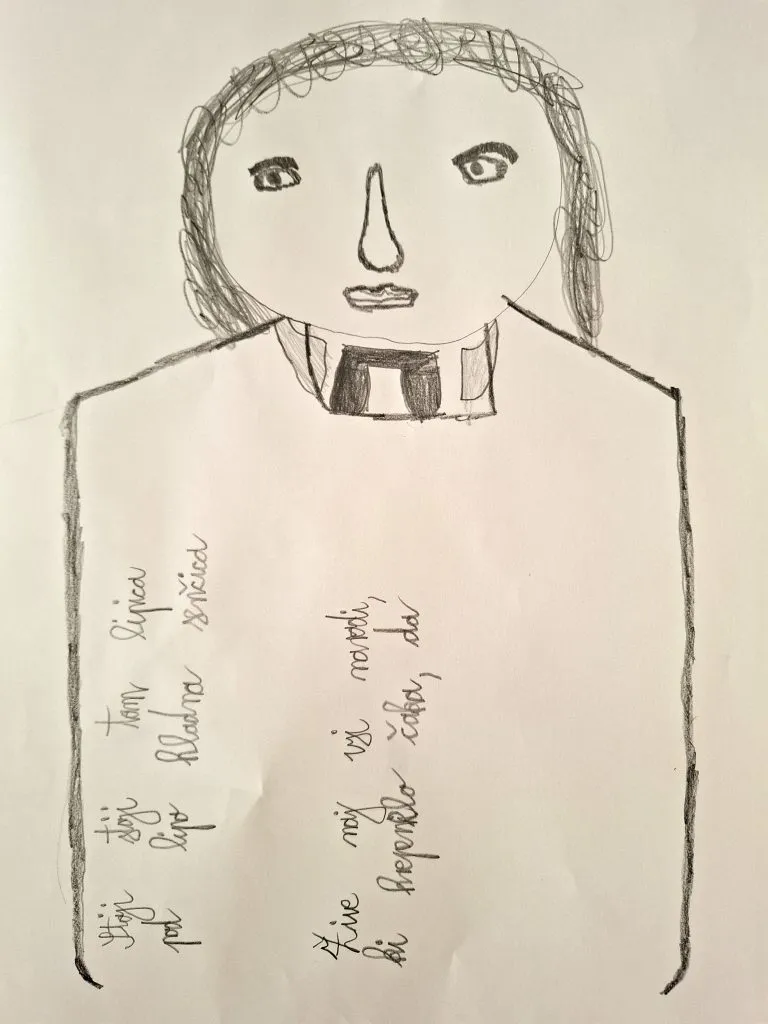 Stoji stoji tam lipica
pod lipo hladna senčica
Žive naj vsi narodi,
ki čaka, da